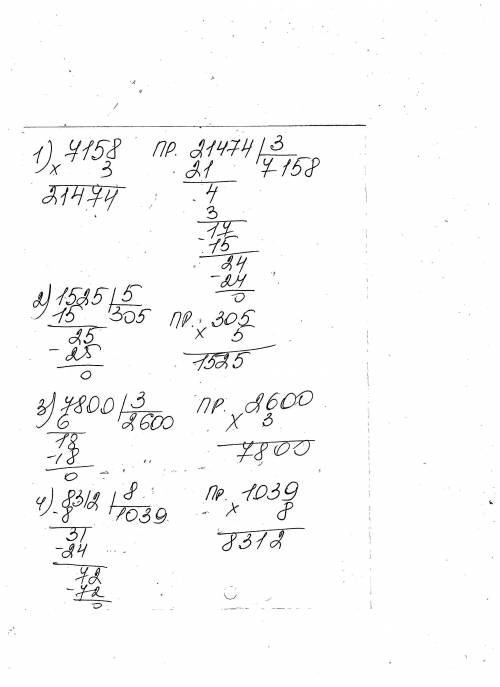 1) 7158 ПР. 21474 | 3
x 3 21 7158
21474 4
3
17
-15
24
-24
0
2) 1525 | 5 ПР. 305
15 305 x 5
25 1525
-25
0
3) 7800 | 3 ПР. 2600
6 2600 x 3
18 7800
-18
0
4) 8312 | 8 ПР. 1039
-8 1039 x 8
31 8312
-24
72
-72
0